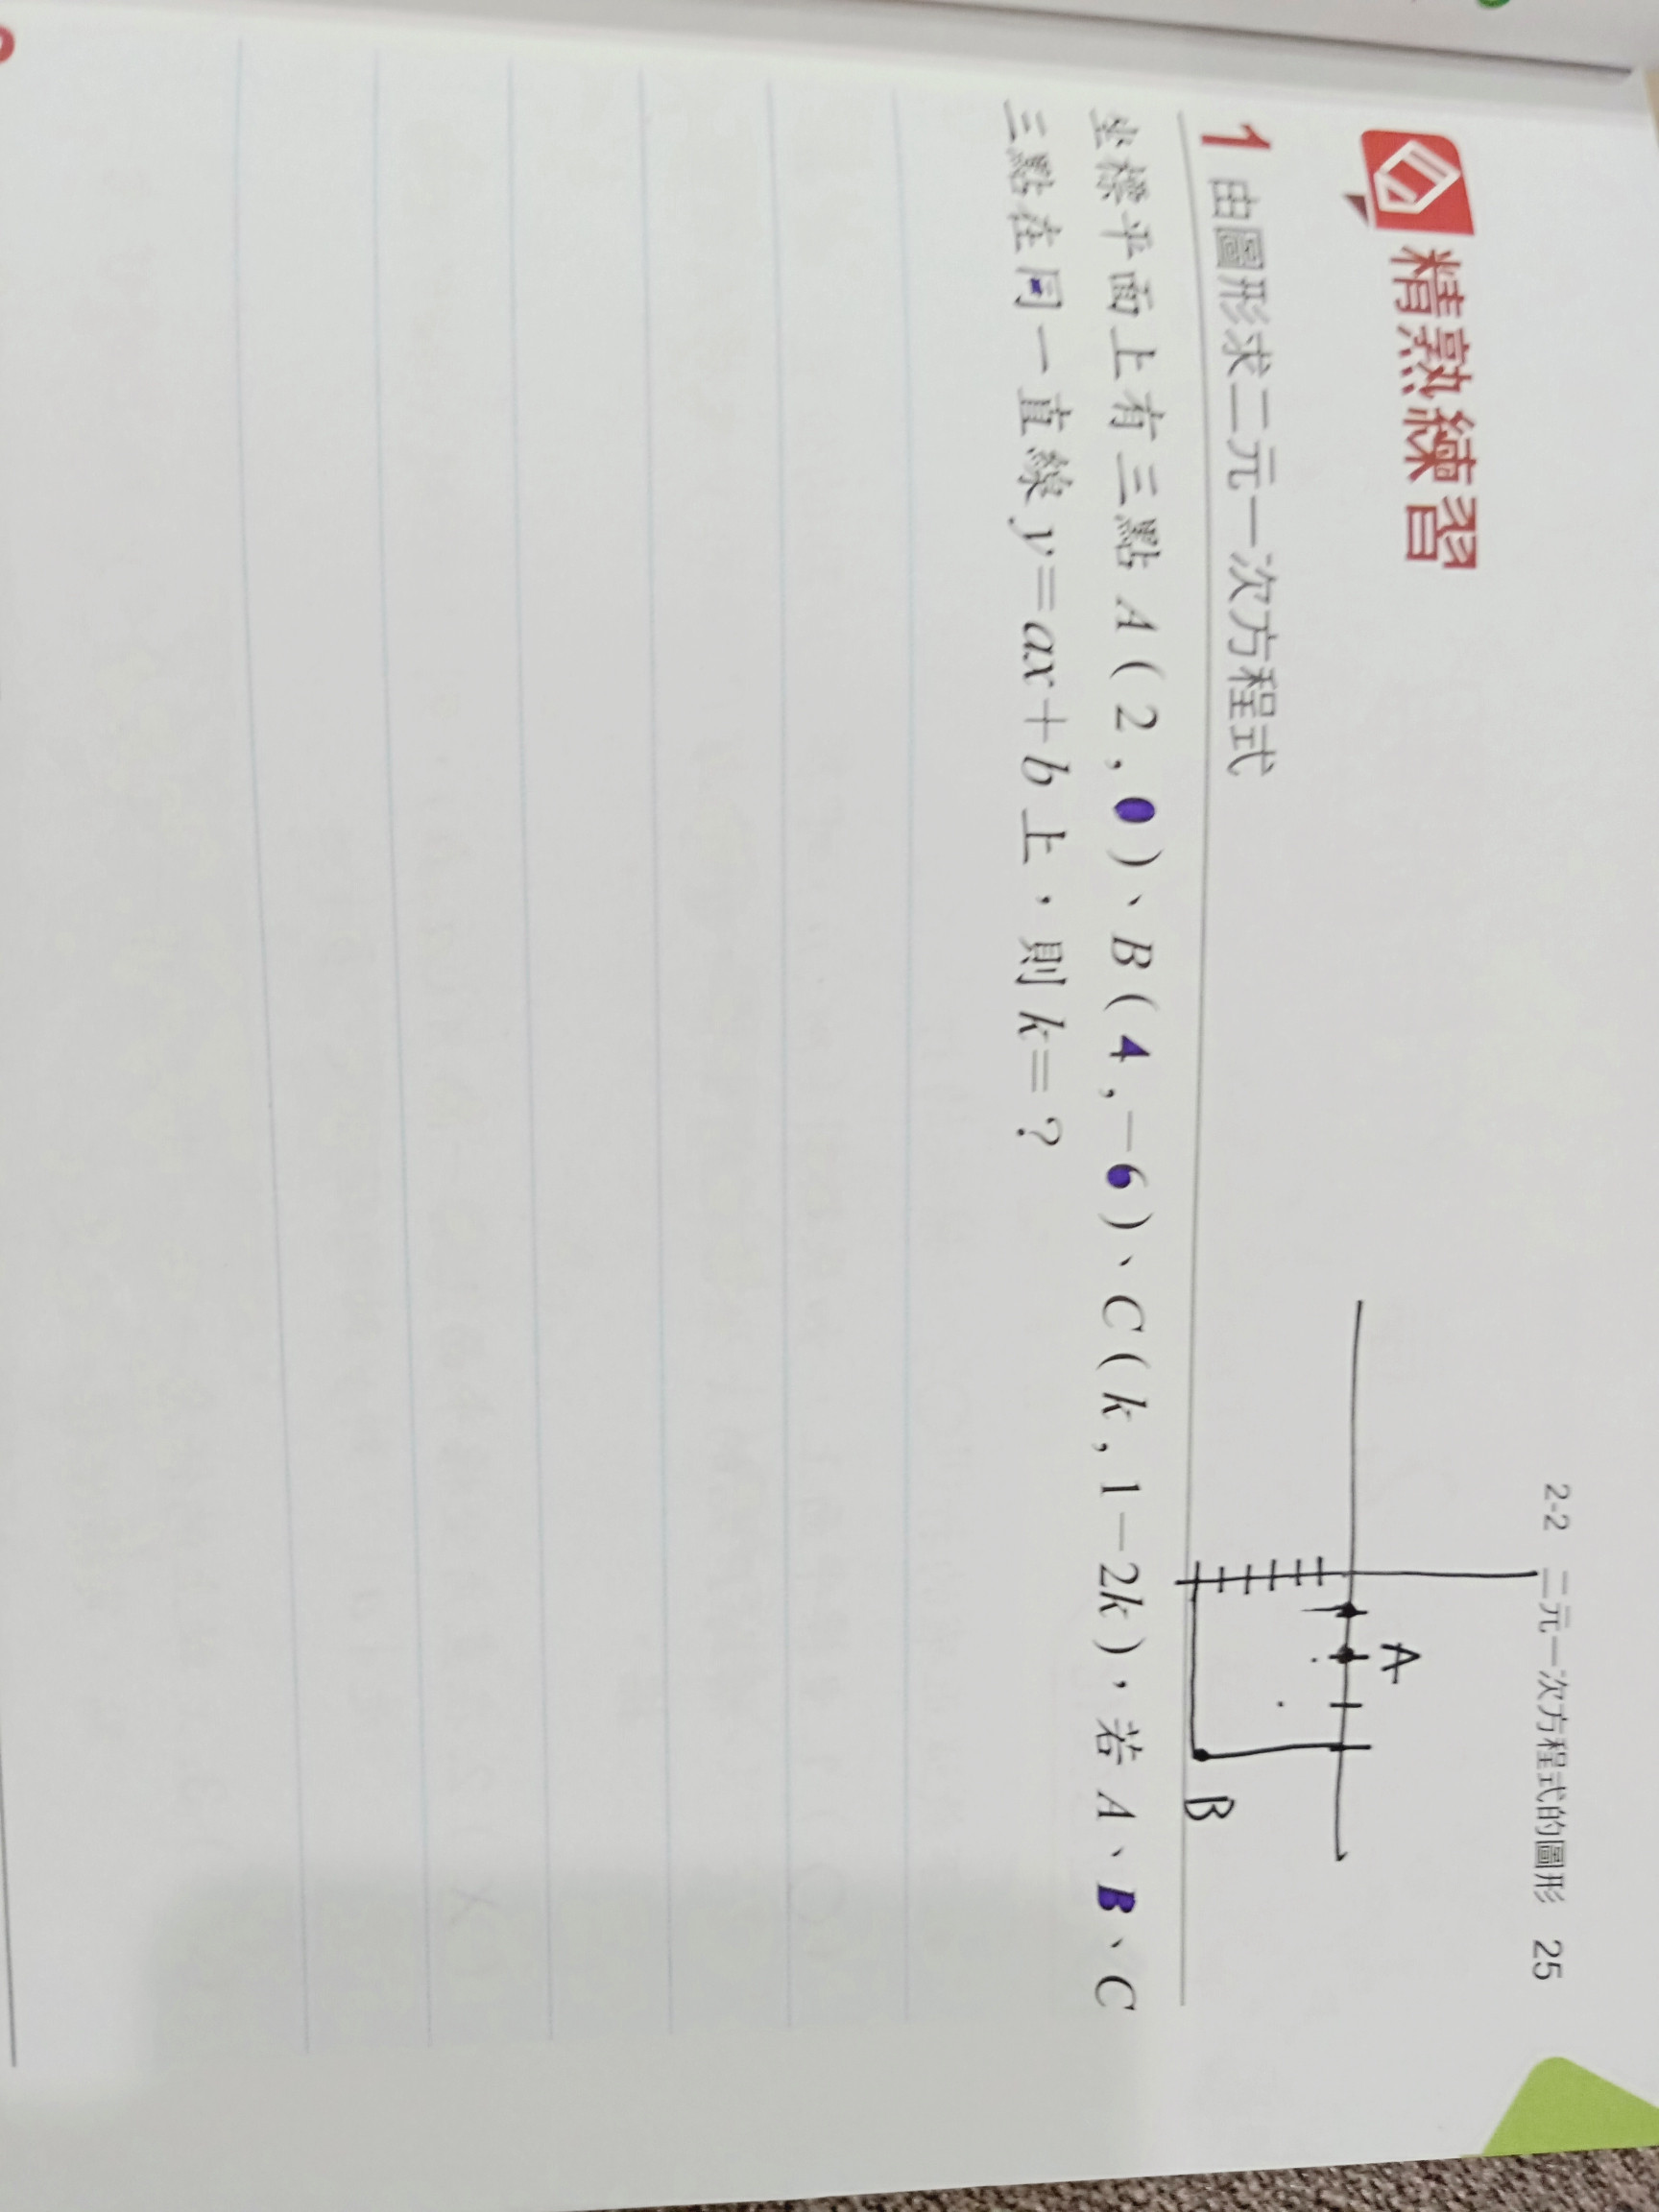 2-2 二元一次方程式的圖形 25
精熟練習
1 由圖形求二元一次方程式
坐標平面上有三點 A(2,0)、B(4,-6)、C(k,1-2k),若 A、B、C
三點在同一直線 y=ax+b 上,則 k=?
A
B